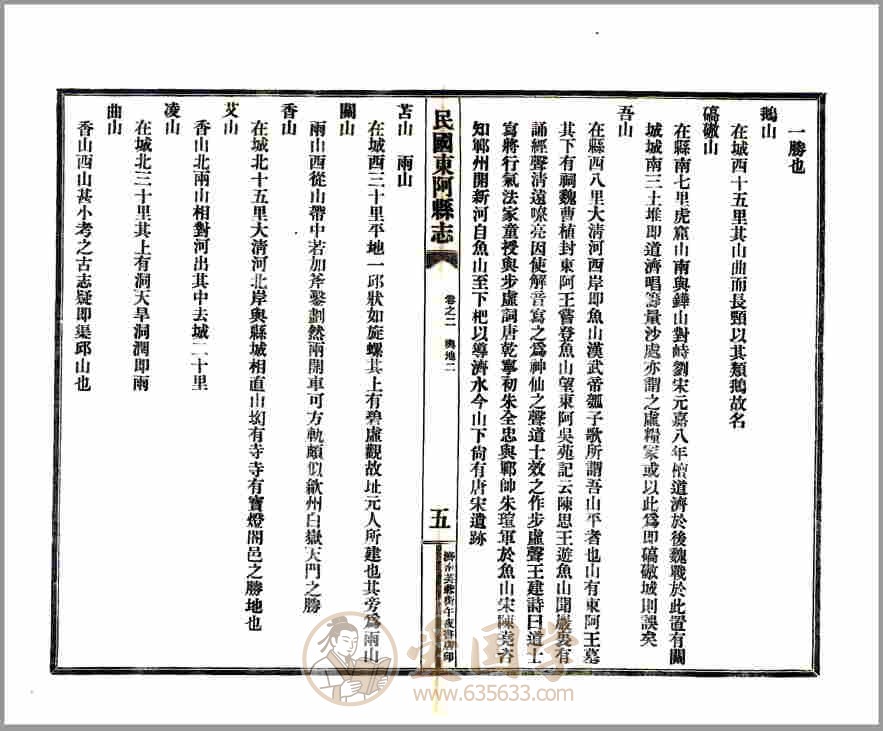 一勝也
鵝山
在城西十五里其山曲而長頸以其類鵝故名
碻磝山
在縣南七里虎窟山南與鐘山對峙劉宋元嘉八年檀道濟於後魏戰於此置有關
城城南三土堆即道濟唱籌量沙處亦謂之虛糧冢或以此爲即碻磝城則誤矣
吾山
在縣西八里大清河西岸即魚山漢武帝瓠子歌所謂吾山平者也山有東阿王墓
其下有祠魏曹植封東阿王嘗登魚山望東阿吳苑記云陳思王遊魚山聞巖裏有
誦經聲清遠嘹亮因使解音寫之爲神仙之聲道士效之作步虛聲王建詩曰道士
寫將行氣法家童授與步虛詞唐乾寧初朱全忠與鄆帥朱瑄軍於魚山宋陳堯咨
知鄆州開新河自魚山至下杷以導濟水今山下尚有唐宋遺跡
民國東阿縣志
卷之二 輿地二
五
濟南芙蓉街午夜書店印
苫山 兩山
在城西三十里平地一邱狀如旋螺其上有碧虛觀故址元人所建也其旁爲兩山
關山
兩山西從山帶中若加斧鑿劃然兩開車可方軌頗似歙州白嶽天門之勝
香山
在城北十五里大清河北岸與縣城相直山㘭有寺寺有寶燈閣邑之勝地也
艾山
香山北兩山相對河出其中去城二十里
凌山
在城北三十里其上有洞天旱洞潤即雨
曲山
香山西山甚小考之古志疑即渠邱山也
定国学
www.635633.com